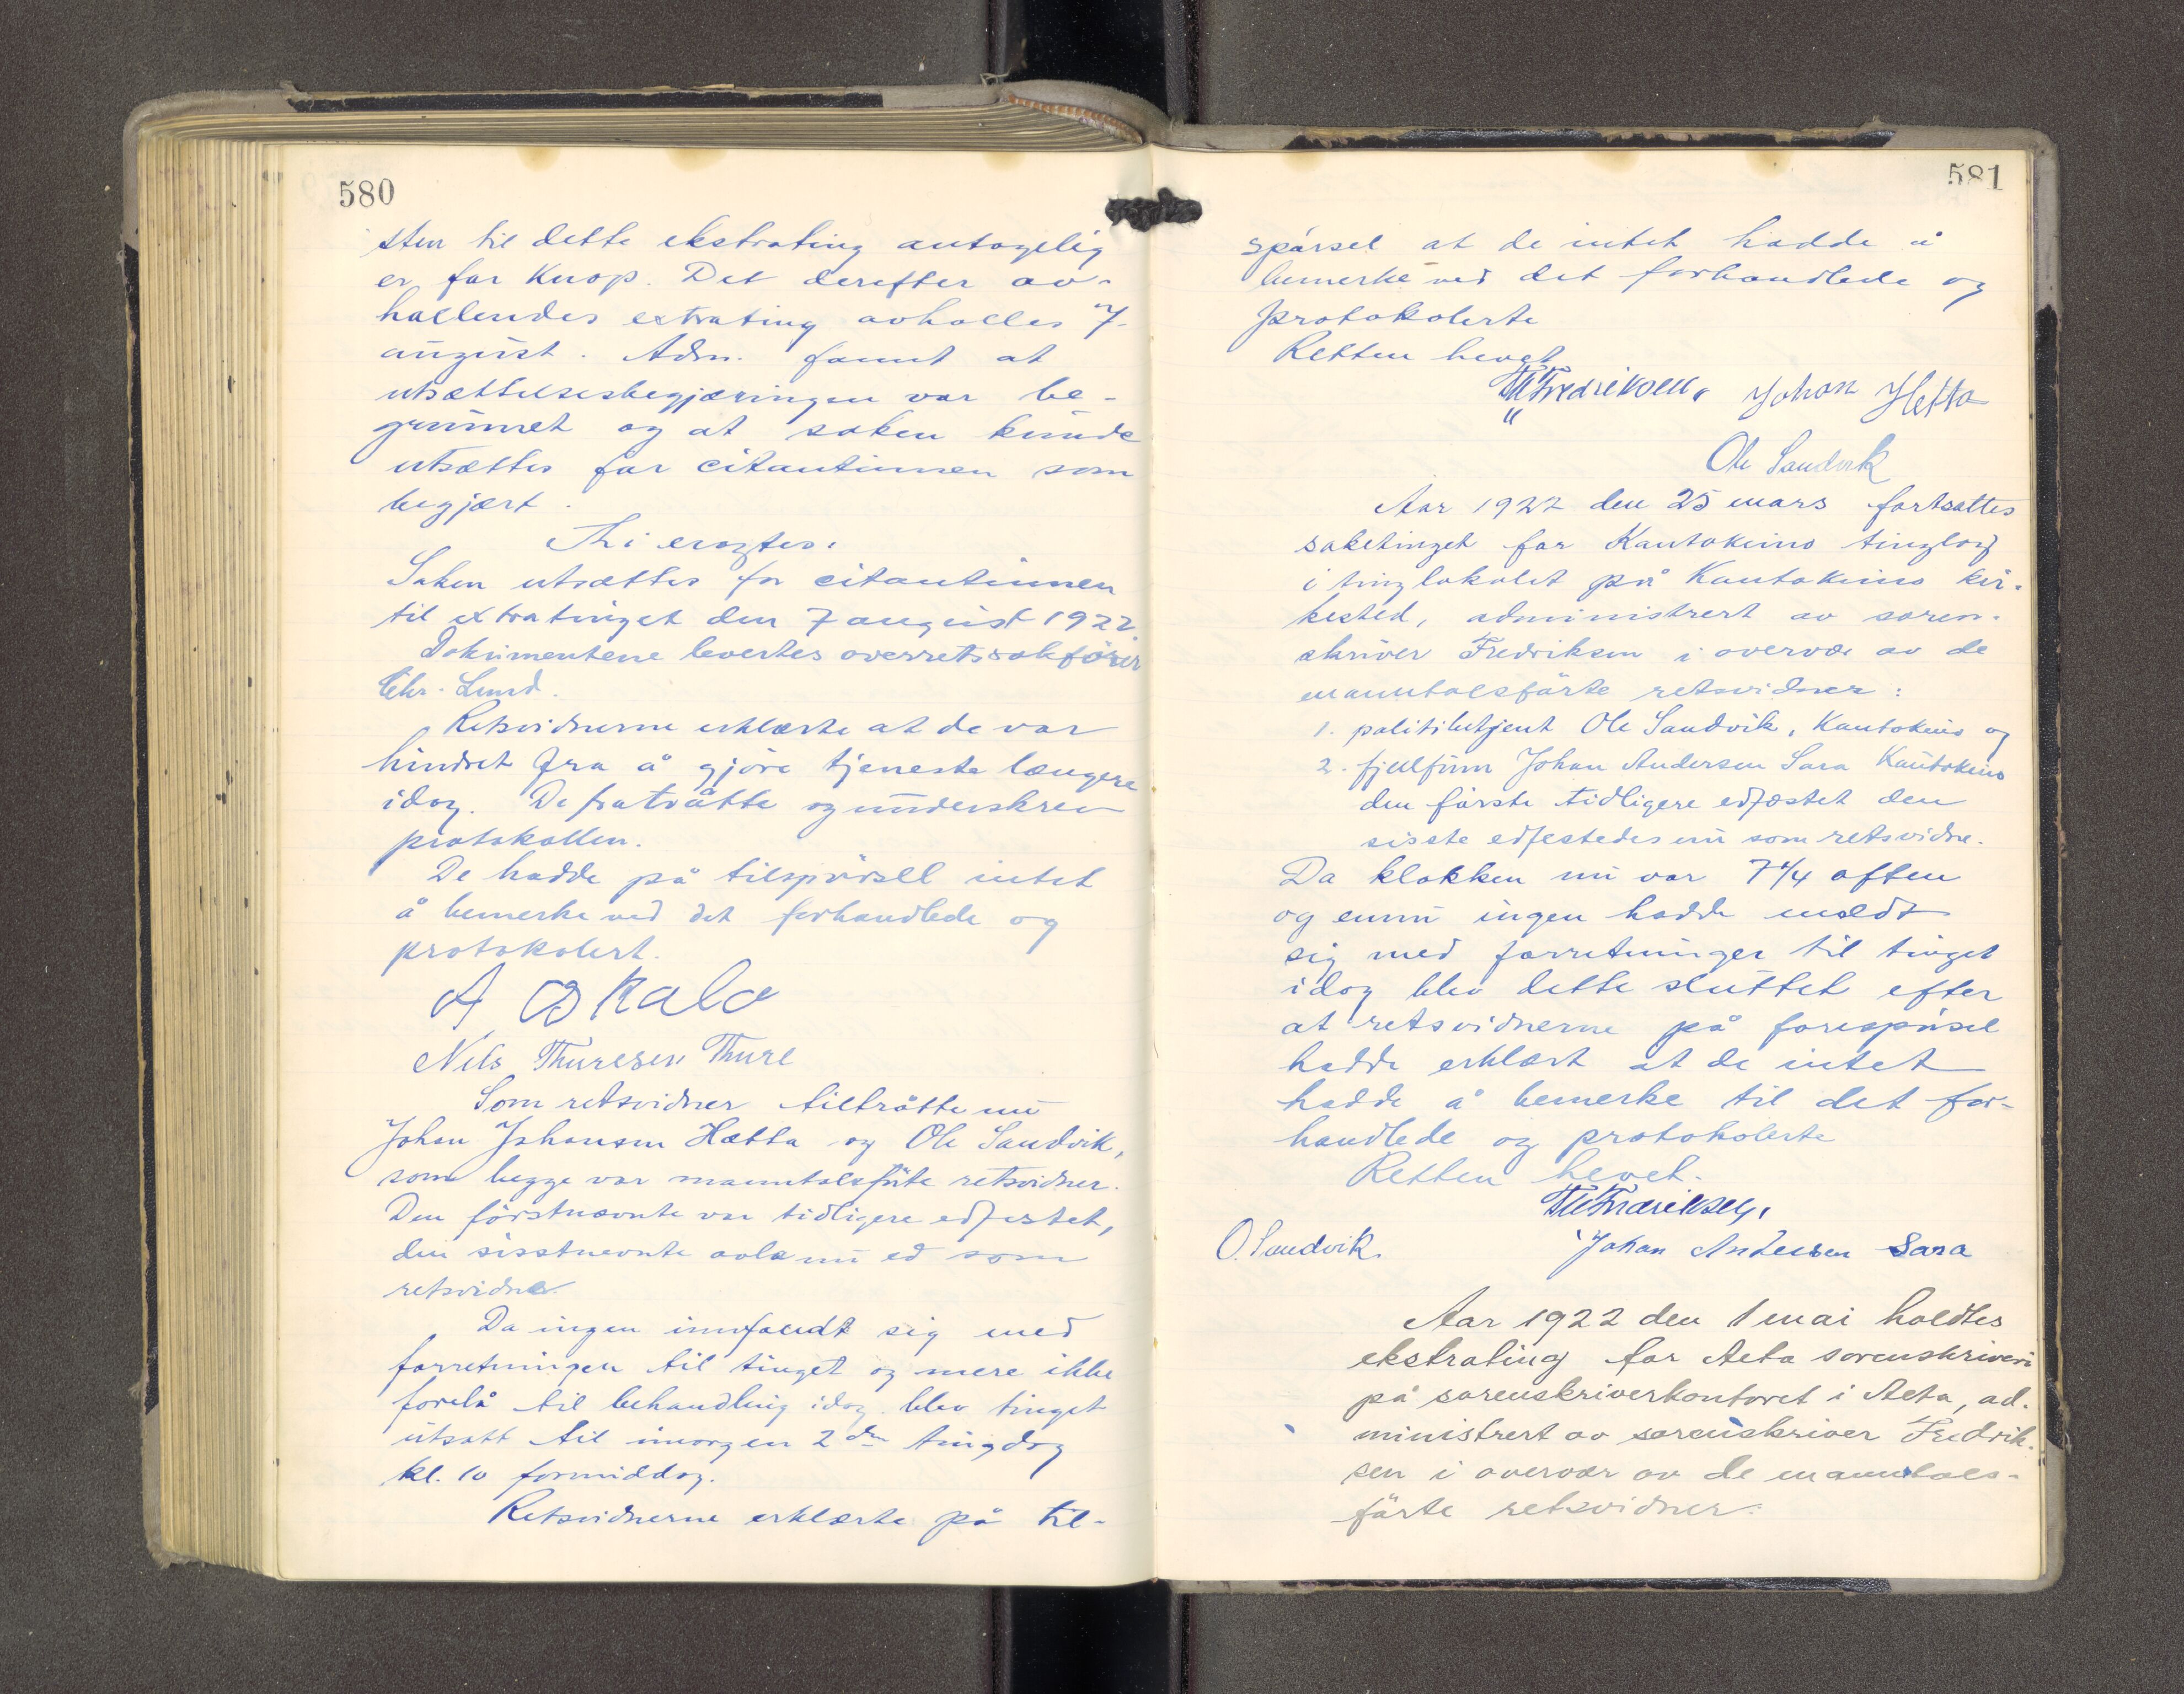 580
sten til dette ekstrating antagelig
er for knap. Det derefter av-
hallendes extrating avholles 7.
august. Adm. fannt at
utsættelsesbegjæringen var be-
grunnet og at saken kunde
utsættes for citantinnen som
begjært.
Thi eragtes:
Saken utsættes for citantinnen
til extratinget den 7 august 1922.
Dokumentene levertes overretssakfører
Chr. Lund.
Retsvidnerne erklærte at de var
hindret fra å gjöre tjeneste længere
idag. De fratrådte og underskrev
protokollen.
De hadde på tilspörsell intet
å bemerke ved det forhandlede og
protokolert.
A Skalo
Nils Thuresen Thuri
Som retsvidner tiltråtte nu
Johan Johansen Hætta og Ole Sandvik,
som begge var manntalsförte retsvidner.
Den förstnævnte var tidligere edfestet,
den sisstnevnte avla nu ed som
retsvidne.
Da ingen innfandt sig med
forretningen til tinget og mere ikke
forelå til behandling idag blev tinget
utsatt til imorgen 2den tingdag
kl. 10 formiddag.
Retsvidnerne erklærte på til-
581
spörsel at de intet hadde å
bemerke ved det forhandlede og
protokolerte
Retten hevet
Fredriksen. Johan Hetta
Ole Sandvik
Aar 1922 den 25 mars fortsattes
saketinget for Kautokeino tinglag
i tinglokalet på Kautokeino kir-
kested, administrert av soren-
skriver Fredriksen i overvær av de
manntalsförte retsvidner:
1. politibetjent Ole Sandvik, Kautokeino og
2. fjellfinn Johan Andersen Sara Kautokeino
den förste tidligere edfæstet den
sisste edfestedes nu som retsvidne.
Da klokken nu var 7 1/4 aften
og ennu ingen hadde meldt
sig med forretninger til tinget
idag blev dette sluttet efter
at retsvidnerne på forespörsel
hadde erklært at de intet
hadde å bemerke til det for-
handlede og protokolerte
Retten hevet.
Fredriksen.
O. Sandvik. Johan Andersen Sara
Aar 1922 den 1 mai holdtes
ekstrating for Alta sorenskriveri
på sorenskriverkontoret i Alta, ad-
ministrert av sorenskriver Fredrik-
sen i overvær av de manntals-
förte retsvidner: